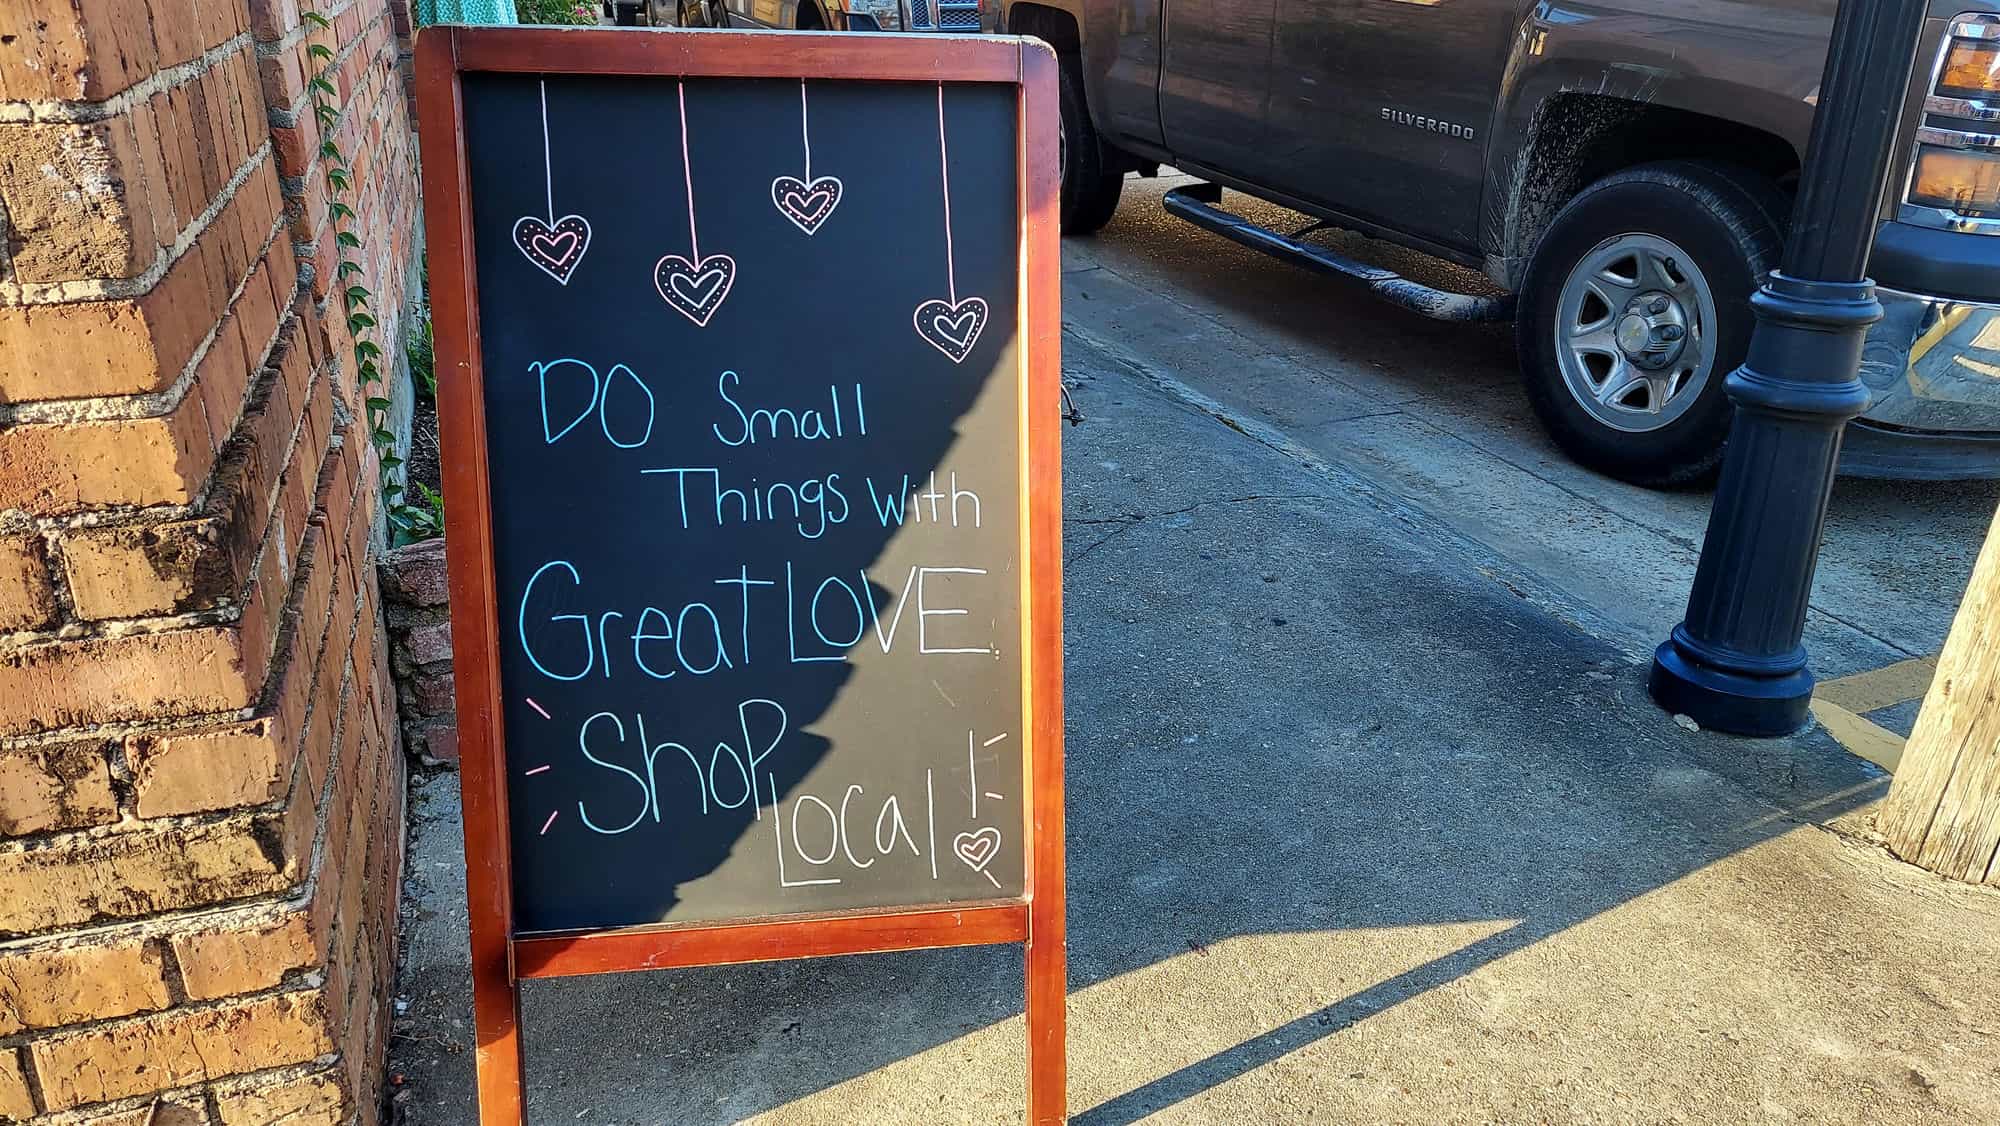 DO Small
Things with
Great LOVE.
Shop
Local!
SILVERADO